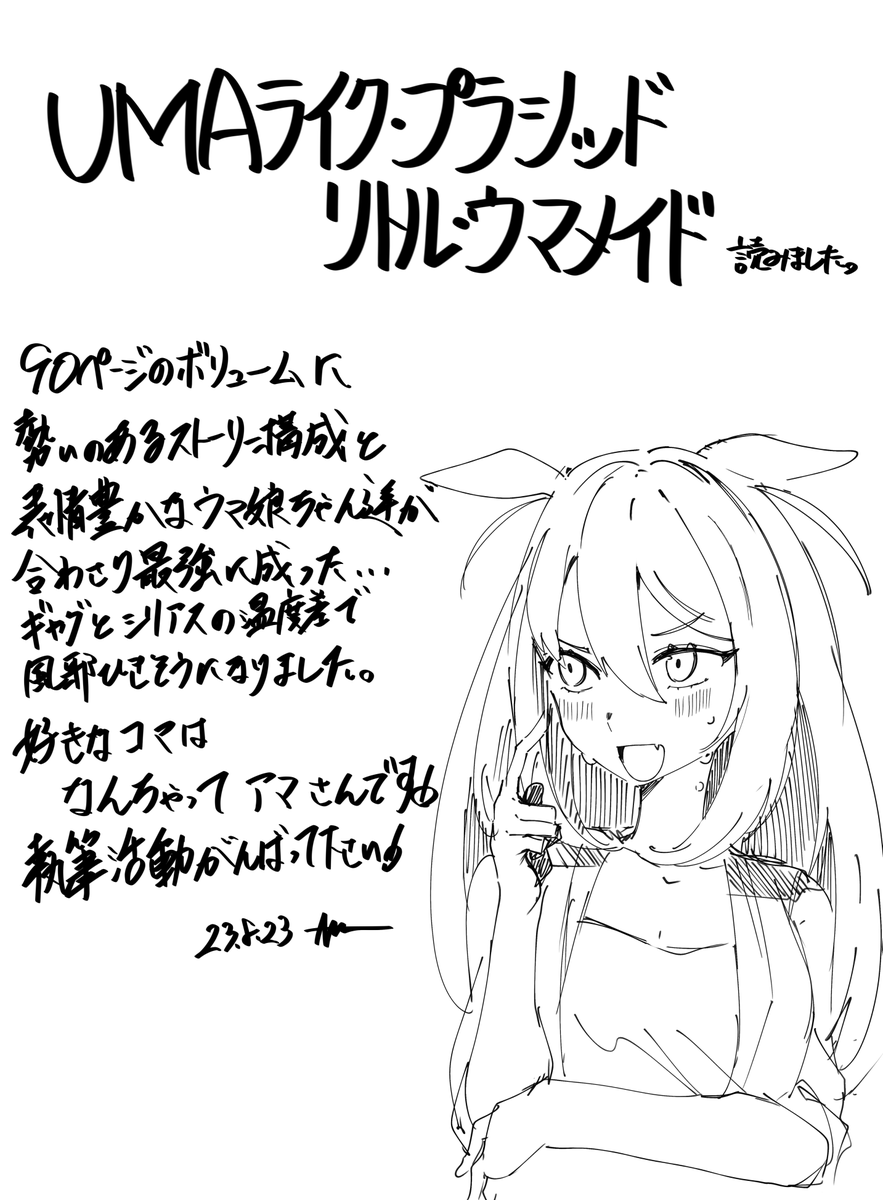 UMAライク・プラシッド
リトル・ウマメイド 読みました。
90ページのボリュームに
勢いのあるストーリー構成と
表情豊かなウマ娘ちゃん達が
合わさり最強に成った…
ギャグとシリアスの温度差で
風邪ひきそうになりました。
好きなコマは
なんちゃってアマさんです!
執筆活動がんばって下さい!
23.8.23